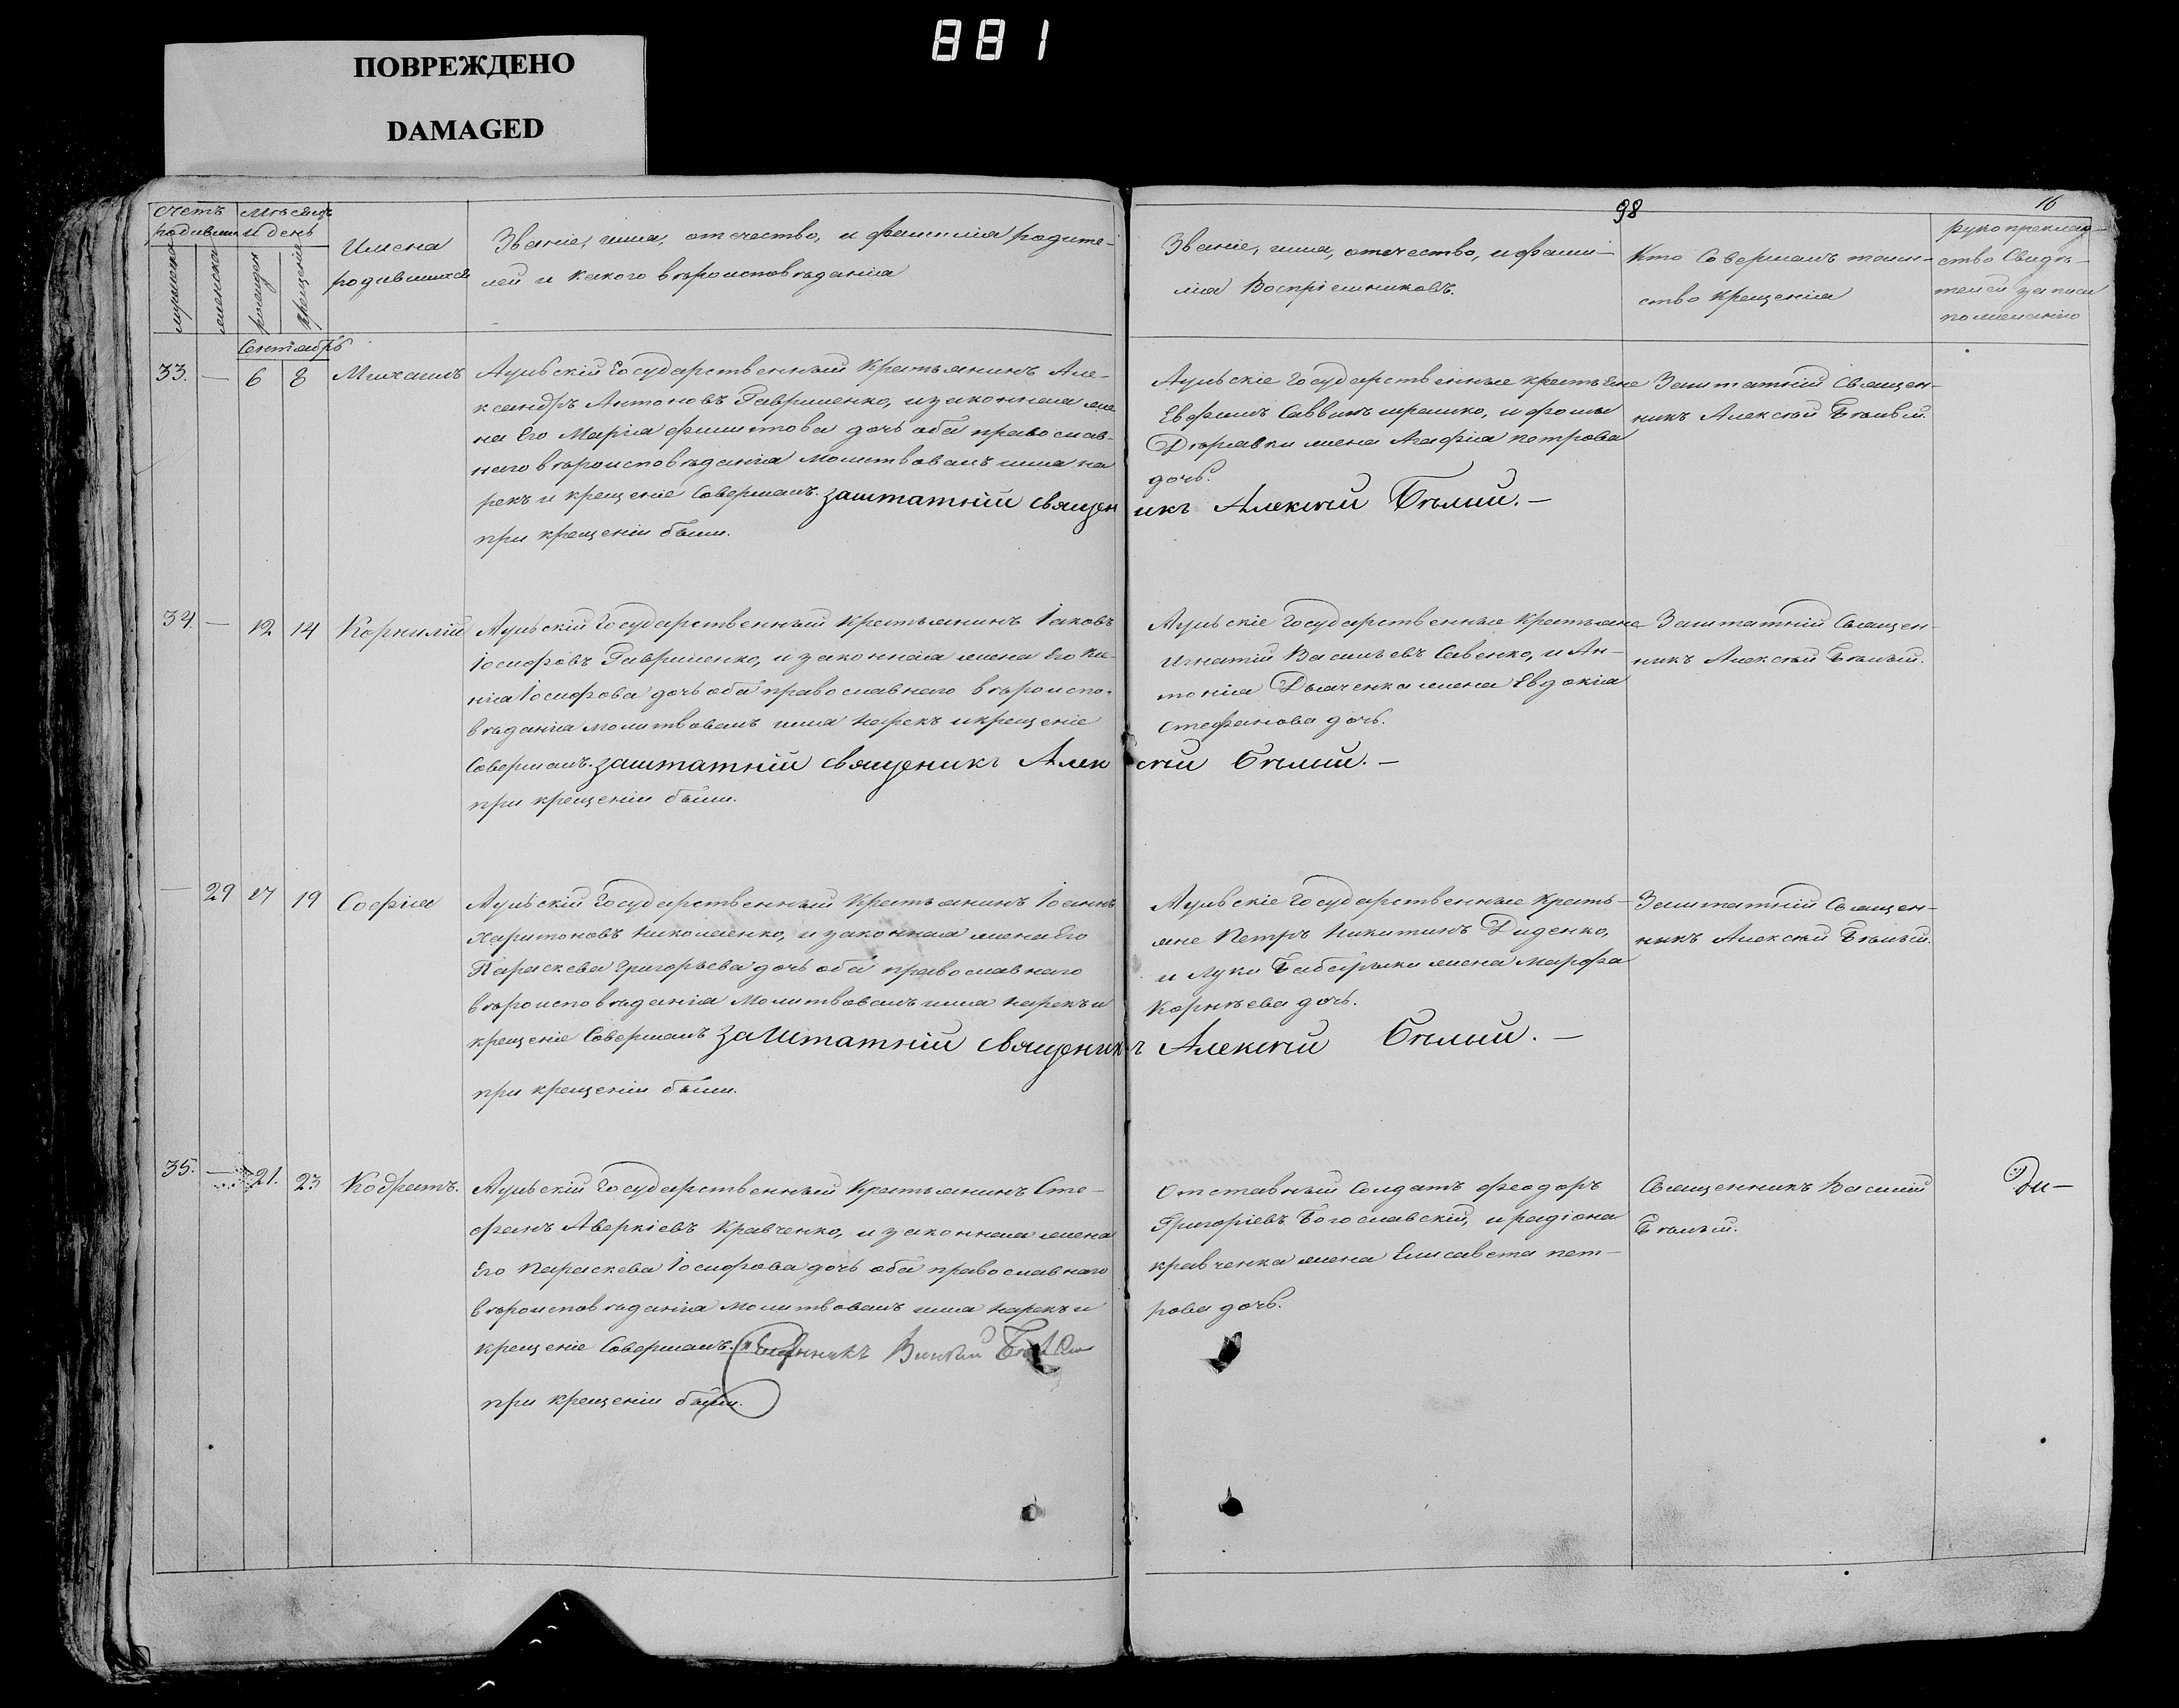 881
ПОВРЕЖДЕНО
DAMAGED
98
16
Счетъ родившихся
мужеска
женска
Мѣсяцъ и день
рожденія
крещенія
Имена
родившихся
Званіе, имя, отчество, и фамилія родите-
лей и какого вѣроисповѣданія
Званіе, имя, отчество, и фами-
лія Воспріемниковъ.
Кто Совершалъ таин-
ство крещенія
рукоприклад-
ство Свидѣ-
телей записи
по желанію
Сентябрь
33. — 6 8 Михаилъ
Аульскій Государственный Крестьянинъ Але-
ксандръ Антоновъ Гавриленко, и законная же-
на Его Марія Филипова дочь оба православ-
наго вѣроисповѣданія Молитвовалъ имя на
рекъ и крещеніе Совершалъ. заштатній священикъ Алексѣй Бѣлый. —
при крещеніи были.
Аульскіе Государственные крестьяне
Евфимъ Саввинъ и фомы
жена Агафія петрова
дочь.
Заштатній Священ-
никъ Алексѣй Бѣлый.
34. — 12 14 Корнилій
Аульскій Государственный Крестьянинъ Іаковъ
Іосифовъ Гавриленко, и законная жена Его Ки-
нія Іосифова дочь оба православнаго вѣроиспо-
вѣданія молитвовалъ имя нарекъ и крещеніе
Совершалъ. заштатній священикъ Алексѣй Бѣлый. —
при крещеніи были.
Аульскіе Государственные Крестьяне
Игнатій Васильевъ Савенко, и Ан-
тонія Дьяченка жена Евдокія
Стефанова дочь.
Заштатній Священ-
никъ Алексѣй Бѣлый.
— 29 17 19 Софія
Аульскій Государственный Крестьянинъ Іоаннъ
Харитоновъ Николаенко, и законная жена Его
Параскева Григорьева дочь оба православнаго
вѣроисповѣданія Молитвовалъ имя нарекъ и
крещеніе Совершалъ заштатній священикъ Алексѣй Бѣлый. —
при крещеніи были.
Аульскіе Государственные кресть-
яне Петръ Никитинъ Диденко,
и Луки жена Марфа
Корнѣева дочь.
Заштатній Священ-
никъ Алексѣй Бѣлый.
35. — 21. 23 Кодратъ.
Аульскій Государственный Крестьянинъ Сте-
фанъ Аверкіевъ Кравченко, и законная жена
Его Параскева Іосифова дочь оба православнаго
вѣроисповѣданія Молитвовалъ имя нарекъ и
крещеніе Совершалъ. Священникъ Василій
при крещеніи были.
Отставный Солдатъ феодоръ
Григоріевъ Богославскій, и радіона
кравченка жена Елисавета пет-
рова дочь.
Священникъ Василій
Бѣлый.